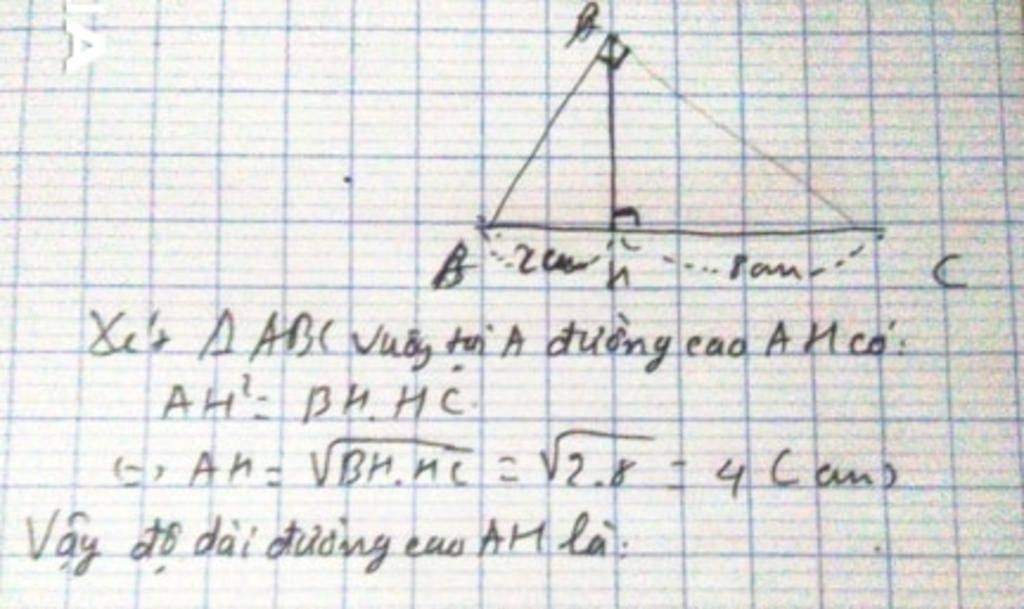 A
B 2cm H 8cm C
Xét Δ ABC vuông tại A đường cao AH có:
AH² = BH. HC
(=) AH = √BH.HC = √2.8 = 4 (cm)
Vậy độ dài đường cao AH là: